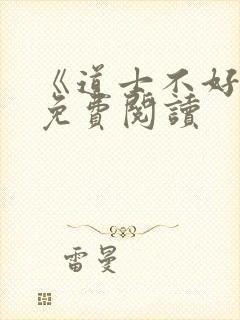 《道士不好
免費閱讀
雷曼